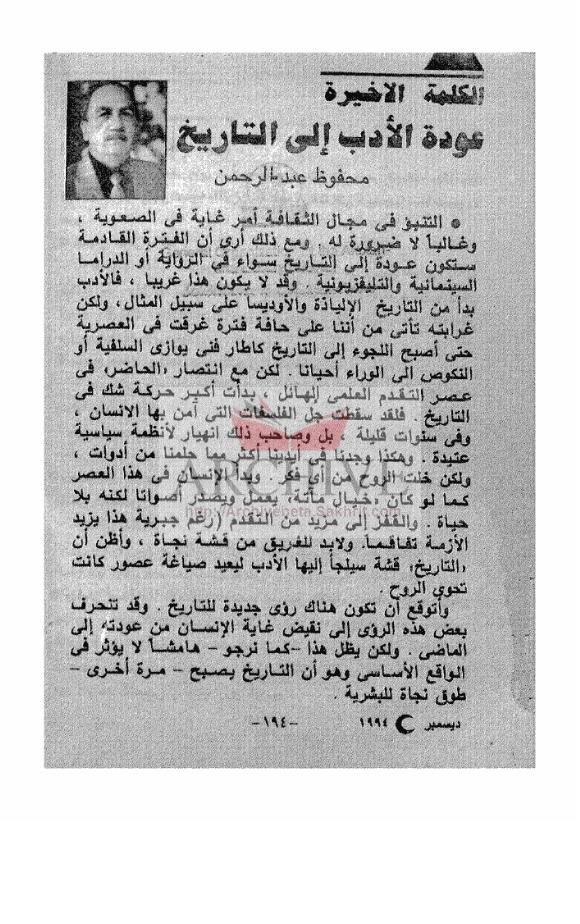 الكلمة الاخيرة
عودة الأدب إلى التاريخ
محفوظ عبد الرحمن
● التنبؤ فى مجال الثقافة أمر غاية فى الصعوبة ،
وغالباً لا ضرورة له . ومع ذلك أرى أن الفترة القادمة
ستكون عودة إلى التاريخ سواء فى الرواية أو الدراما
السينمائية والتليفزيونية . وقد لا يكون هذا غريبا ، فالأدب
بدأ من التاريخ الإلياذة والأوديسا على سبيل المثال، ولكن
غرابته تأتى من أننا على حافة فترة غرقت فى العصرية
حتى أصبح اللجوء إلى التاريخ كاطار فنى يوازى السلفية أو
النكوص الى الوراء أحيانا . لكن مع انتصار «الحاضر» فى
عصر التقدم العلمى الهائل ، بدأت أكبر حركة شك فى
التاريخ فلقد سقطت جل الفلسفات التى آمن بها الانسان ،
وفى سنوات قليلة ، بل وصاحب ذلك انهيار لأنظمة سياسية
عتيدة . وهكذا وجدنا فى أيدينا أكثر مما حلمنا من أدوات ،
ولكن خلت الروح من أى فكر . وبدأ الإنسان فى هذا العصر
كما لو كان «خيال مآتة» يعمل ويصدر أصواتا لكنه بلا
حياة . والقفز إلى مزيد من التقدم (رغم جبرية هذا يزيد
الأزمة تفاقماً. ولابد للغريق من قشة نجاة ، وأظن أن
«التاريخ» قشة سيلجأ إليها الأدب ليعيد صياغة عصور كانت
تحوى الروح .
وأتوقع أن تكون هناك رؤى جديدة للتاريخ . وقد تنحرف
بعض هذه الرؤى إلى نقيض غاية الإنسان من عودته إلى
الماضى . ولكن يظل هذا -كما نرجو- هامشاً لا يؤثر فى
الواقع الأساسى وهو أن التاريخ يصبح - مرة أخرى -
طوق نجاة للبشرية .
ARCHIVE
http://Archivebeta.Sakhrit.com
ديسمبر ١٩٩٤ -١٩٤-